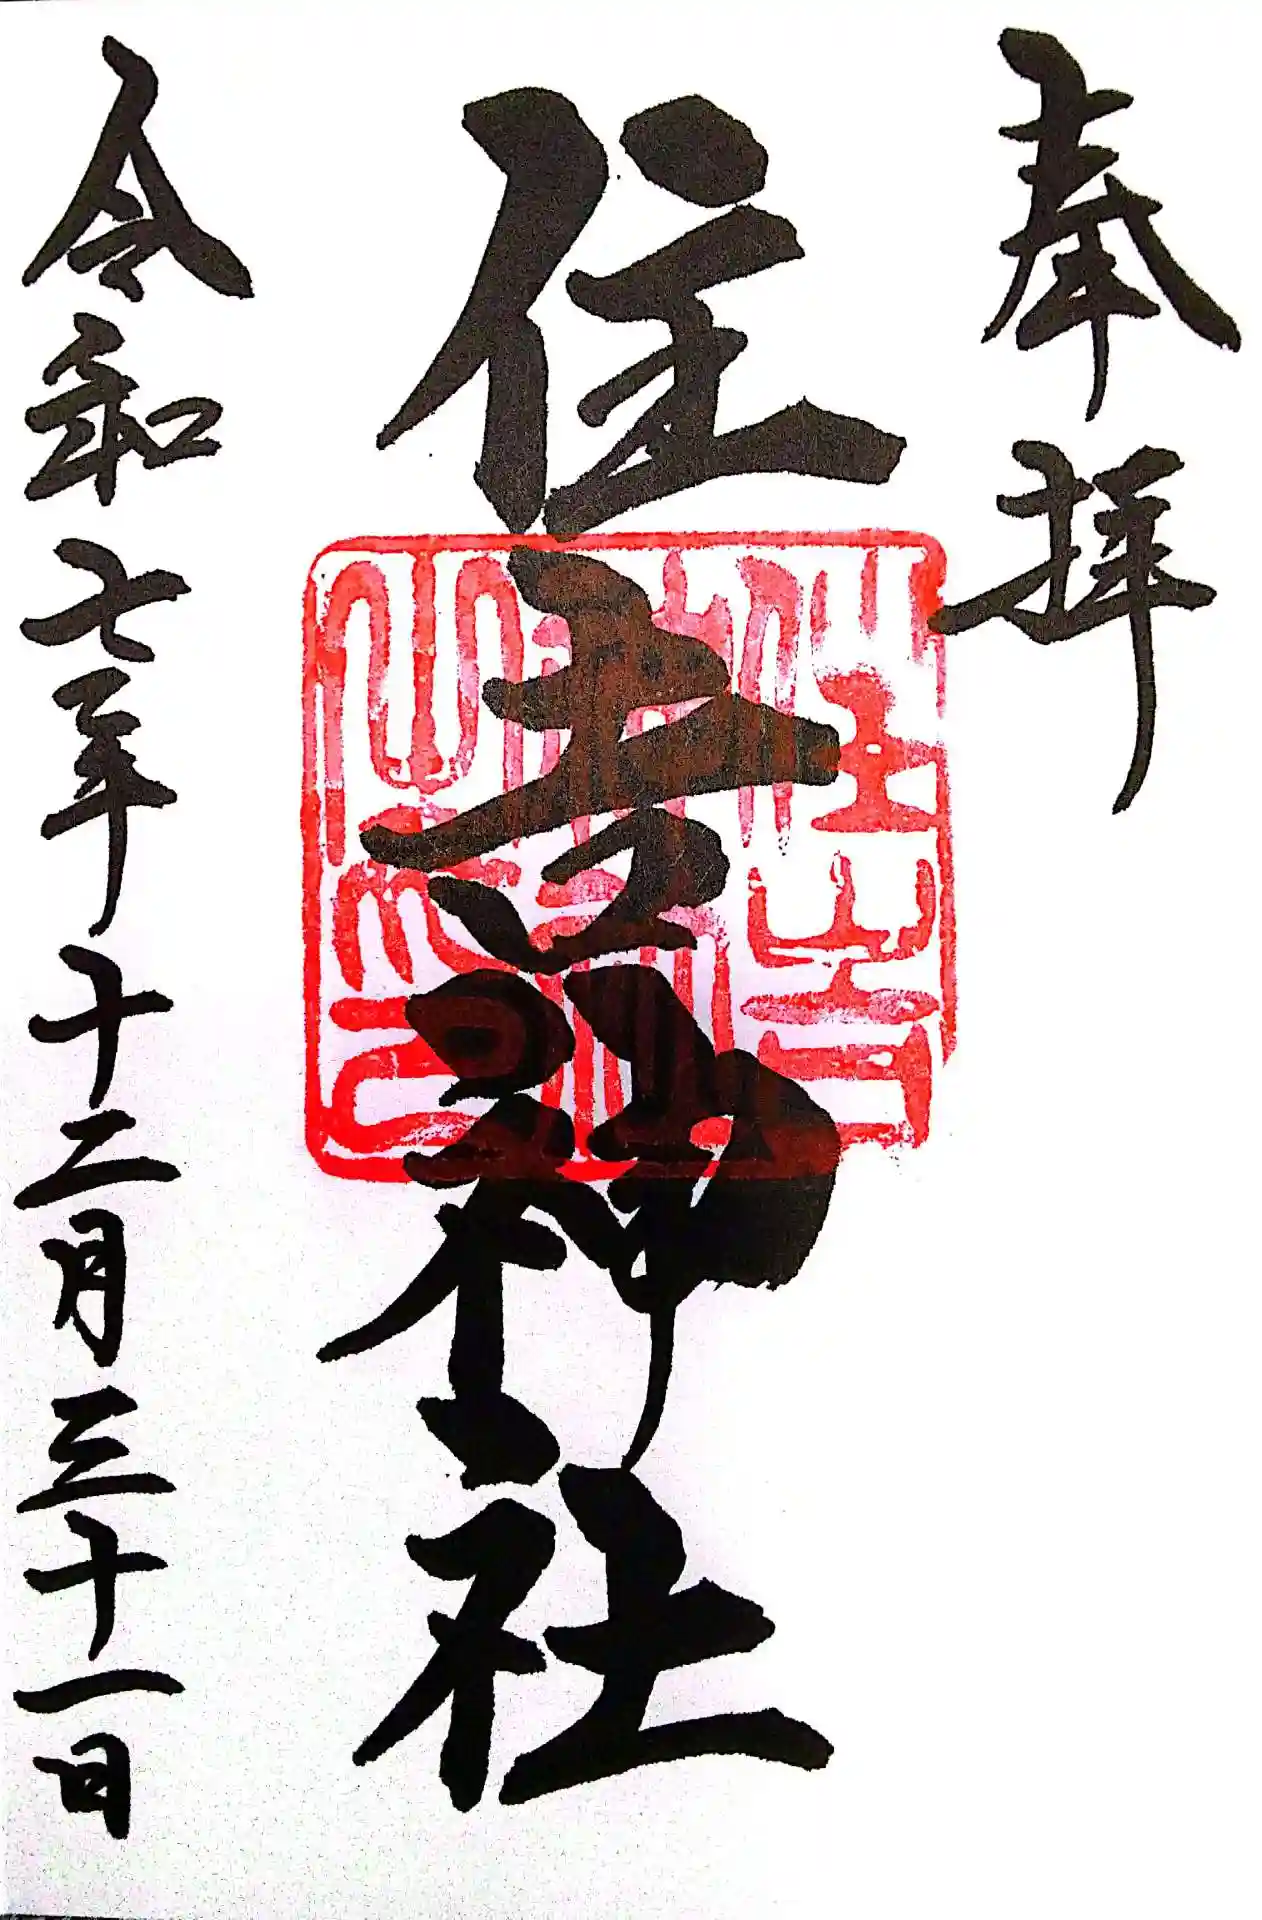 奉拝
住吉神社
令和七年十二月三十一日